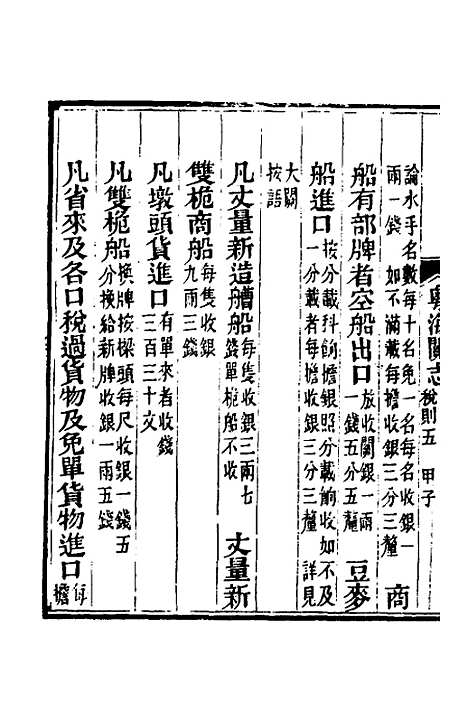 粵海關志 稅則五 甲子
論水手名數每十名免一名每名收銀一
兩一錢 如不滿載每擔收銀三分三釐 商
船有部牌者空船出口 放關銀一兩
一錢五分五釐 豆麥
船進口 按分載科餉擔銀照分載餉收如不及
一分載者每擔收銀三分三釐 詳見
大關
按語
凡丈量新造艚船 每隻收銀三兩七
錢單桅船不收 丈量新
雙桅商船 每隻收銀
九兩三錢
凡墩頭貨進口 有單來者收錢
三百三十文
凡雙桅船 換牌按樑頭每尺收銀一錢五
分換給新牌收銀一兩五錢
凡省來及各口稅過貨物及免單貨物進口 每
擔